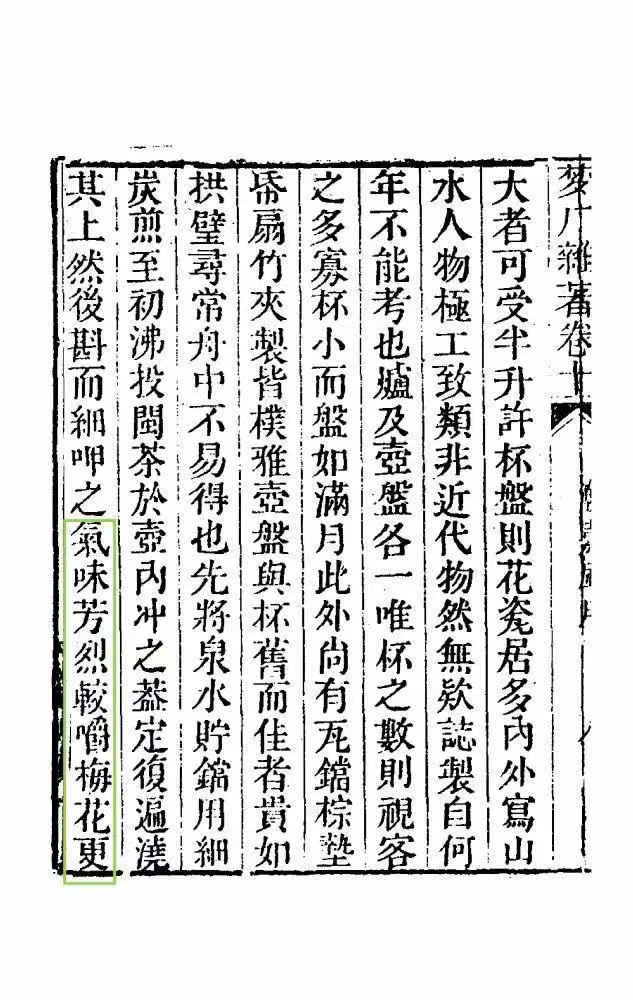 夢厂雜著卷十
大者可受半升許杯盤則花瓷居多內外寫山
水人物極工致類非近代物然無欵誌製自何
年不能考也爐及壺盤各一唯杯之數則視客
之多寡杯小而盤如滿月此外尚有瓦鐺棕墊
帋扇竹夾製皆樸雅壺盤與杯舊而佳者貴如
拱璧尋常舟中不易得也先將泉水貯鐺用細
炭煎至初沸投閩茶於壺內冲之葢定復遍澆
其上然後斟而細呷之氣味芳烈較嚼梅花更